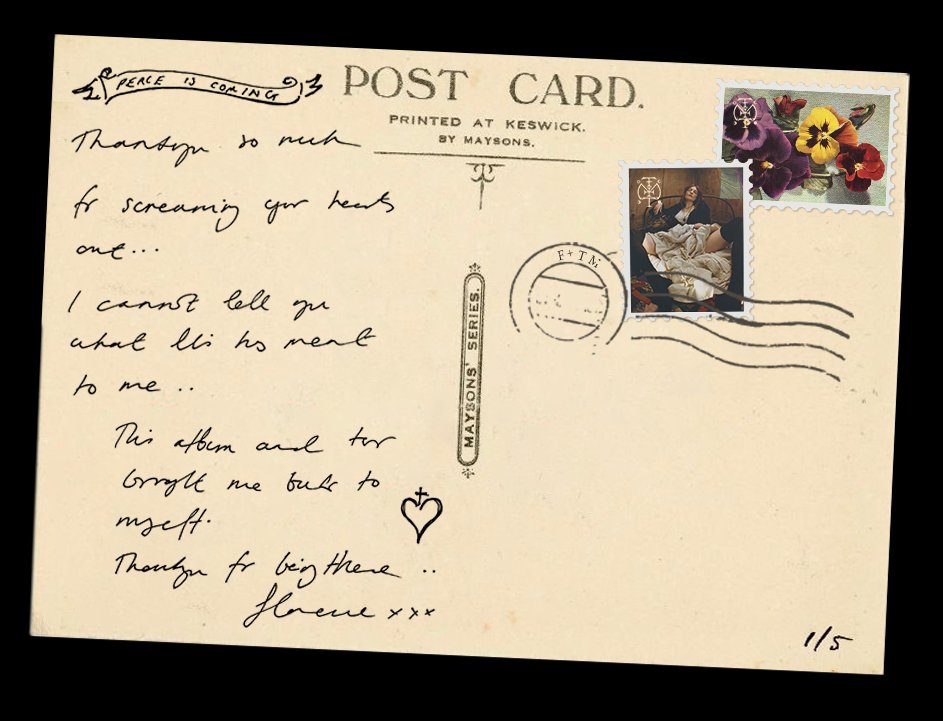 PEACE IS COMING
Thankyou so much
for screaming your hearts
out...
I cannot tell you
what this has meant
to me ..
This album and tour
brought me back to
myself.
Thankyou for being there ..
Florence xxx
POST CARD.
PRINTED AT KESWICK.
BY MAYSONS.
MAYSONS' SERIES.
F+TM
1/5